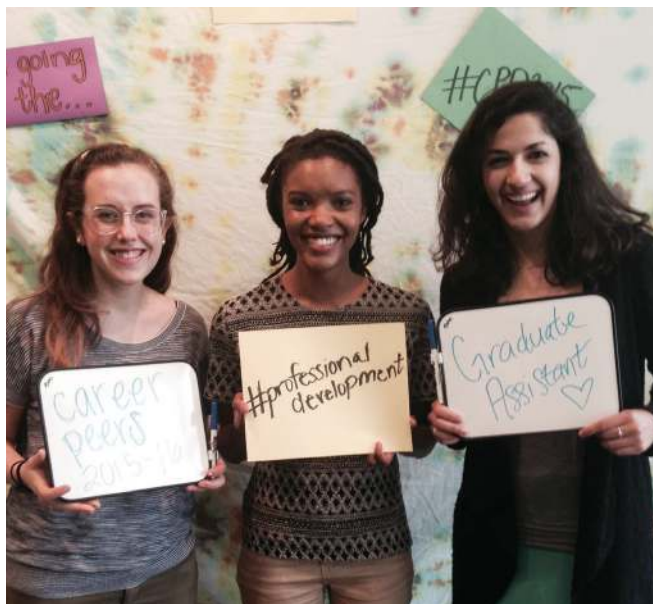 going
the...
#CPD2015
career
peers
2015-16
#professional
development
Graduate
Assistant